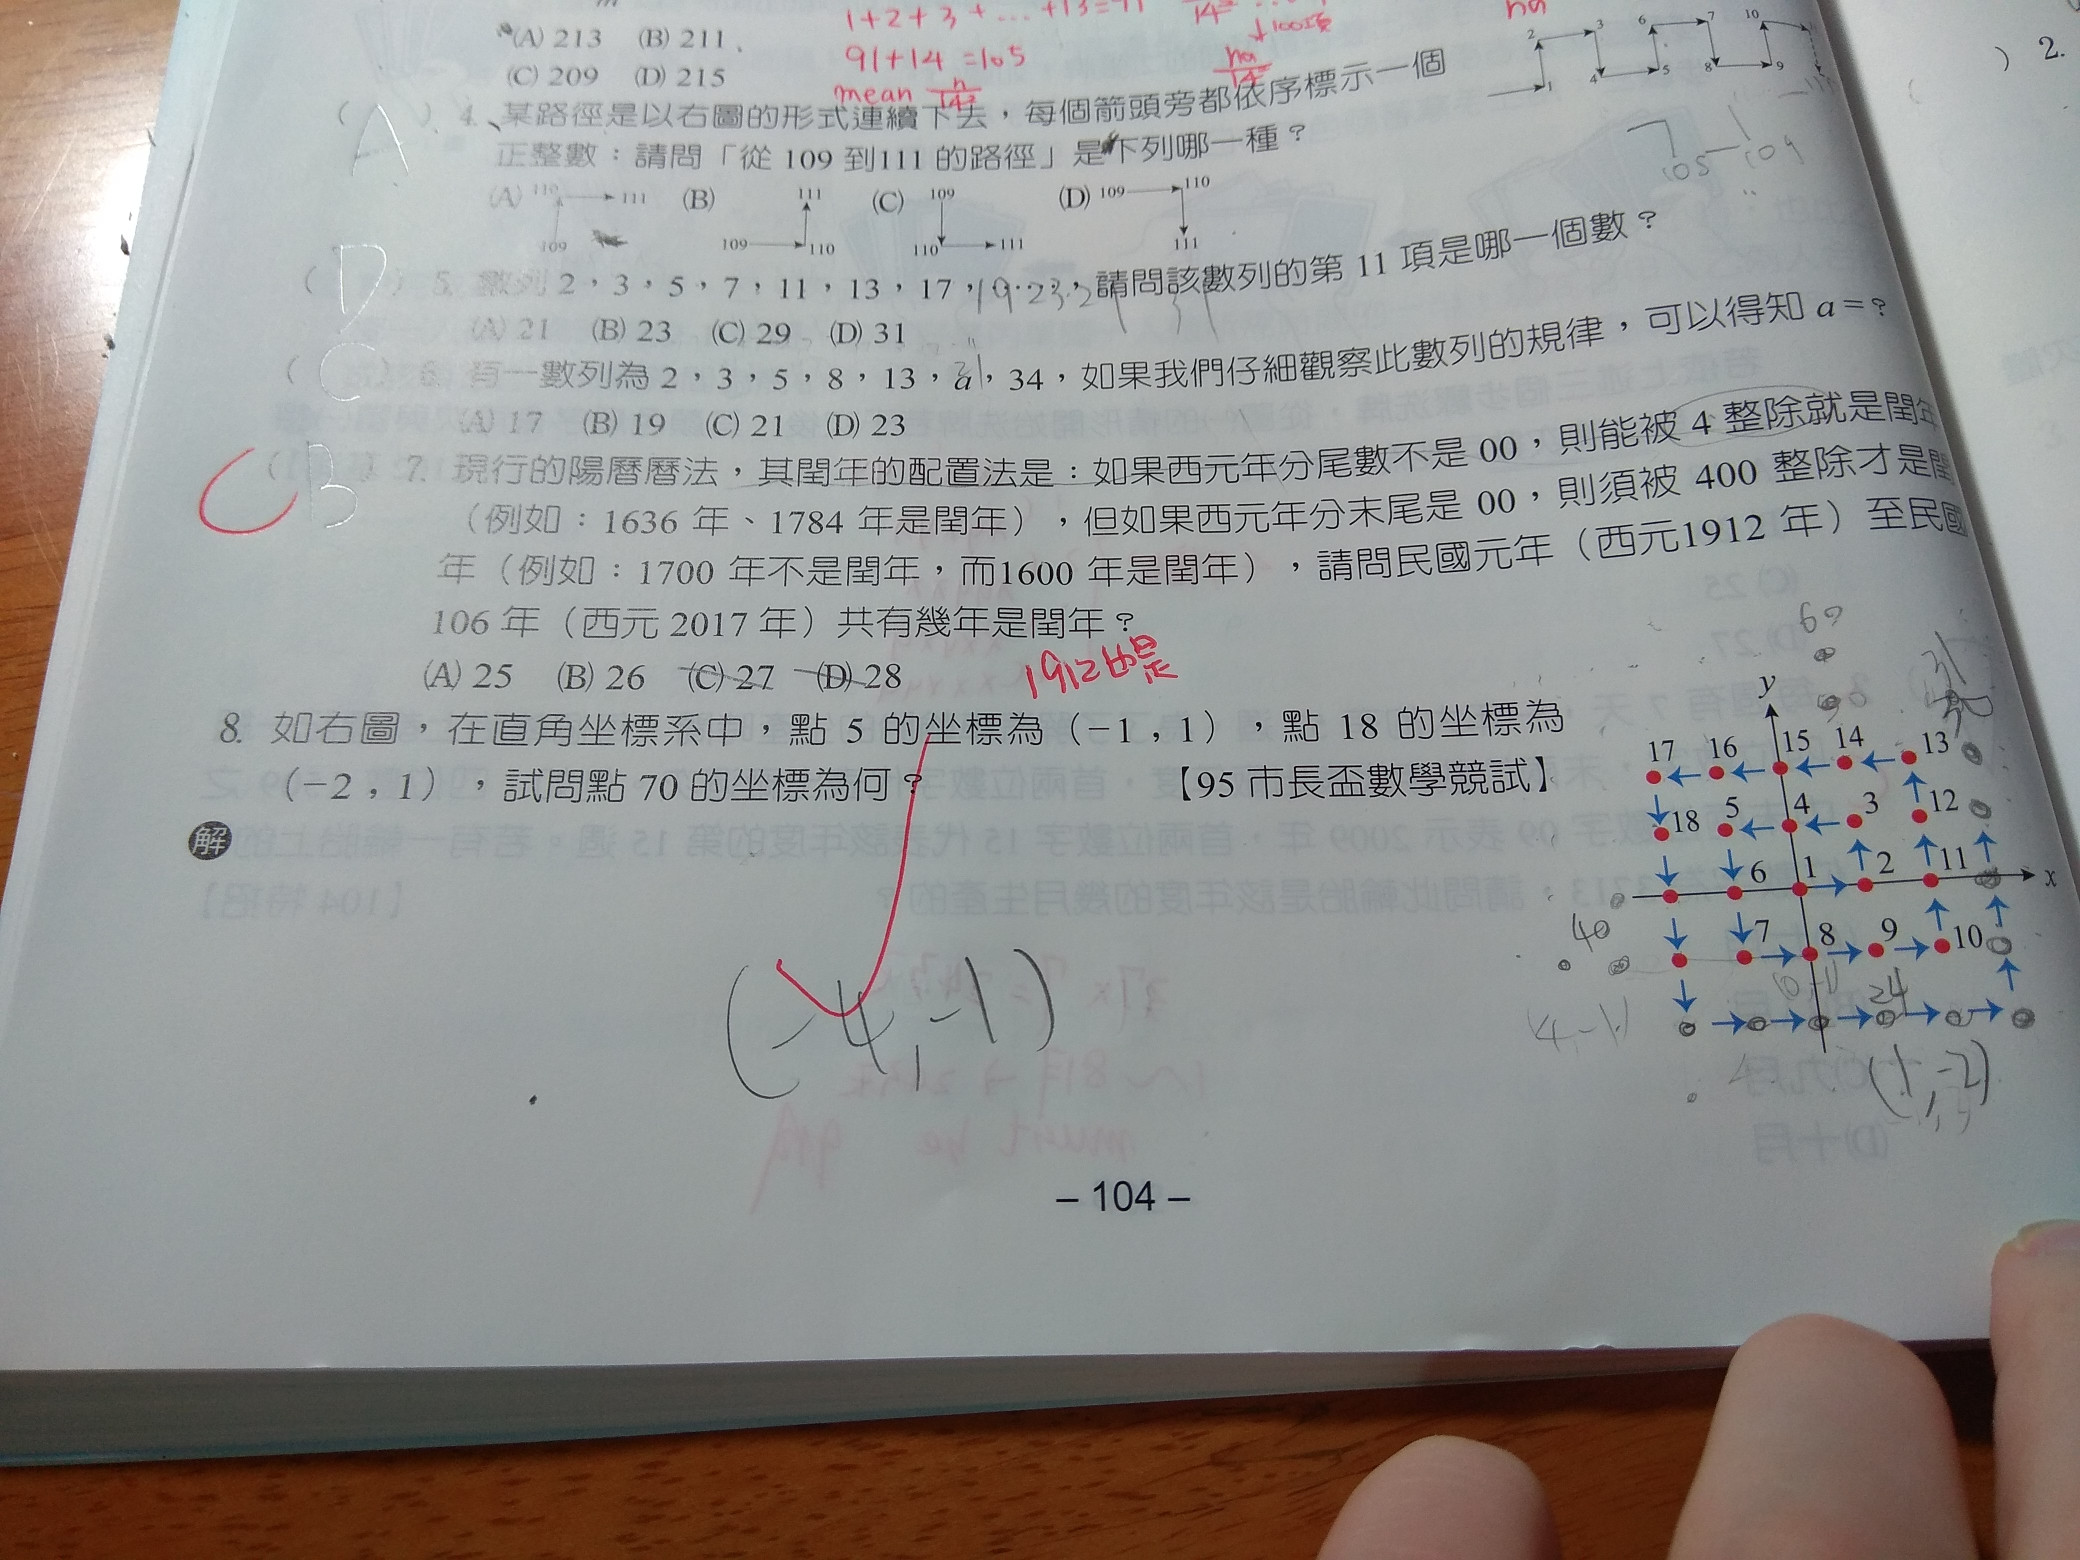 1+2+3+…+13=91
(A) 213 (B) 211
91+14=105
↓100項
(C) 209 (D) 215
mean n/14²
na/14²
na
1 2 3 4 5 6 7 8 9 10
) 2.
( A ) 4. 某路徑是以右圖的形式連續下去，每個箭頭旁都依序標示一個
正整數：請問「從 109 到111 的路徑」是下列哪一種？
105 109
(A) 110 111 109 (B) 111 109 110 (C) 109 110 111 (D) 109 110 111
( D ) 5. 數列 2，3，5，7，11，13，17，19.23.29 31，請問該數列的第 11 項是哪一個數？
(A) 21 (B) 23 (C) 29 (D) 31
( C ) 6. 有一數列為 2，3，5，8，13，a，34，如果我們仔細觀察此數列的規律，可以得知 a =？
21
(A) 17 (B) 19 (C) 21 (D) 23
C ( B ) 7. 現行的陽曆曆法，其閏年的配置法是：如果西元年分尾數不是 00，則能被 4 整除就是閏年
（例如：1636 年、1784 年是閏年），但如果西元年分末尾是 00，則須被 400 整除才是閏
年（例如：1700 年不是閏年，而1600 年是閏年），請問民國元年（西元1912 年）至民國
106 年（西元 2017 年）共有幾年是閏年？
(A) 25 (B) 26 (C) 27 (D) 28
1912也是
8. 如右圖，在直角坐標系中，點 5 的坐標為（−1，1），點 18 的坐標為
（−2，1），試問點 70 的坐標為何？ 【95 市長盃數學競試】
解
(−4,−1)
y
31
17 16 15 14 13
18 5 4 3 12
6 1 2 11 x
40 7 8 9 10
(0,-1) 24
(4,-1)
(1,-2)
– 104 –